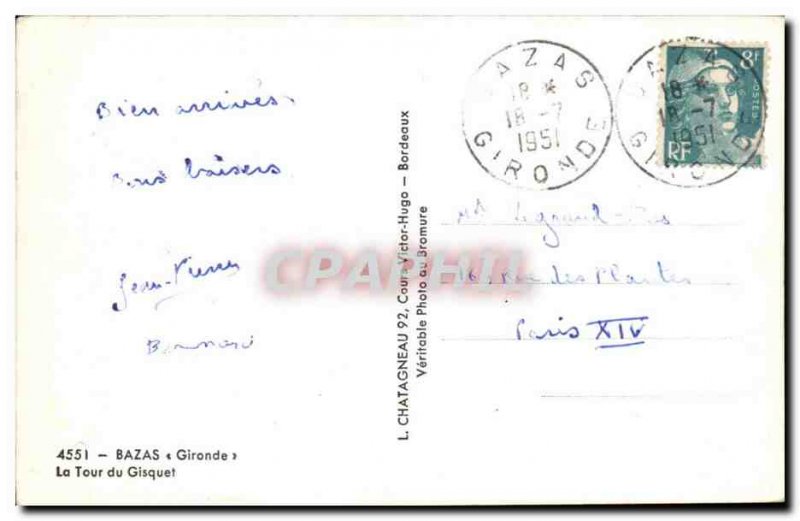 Bien arrivés
Bons baisers
Jean-Pierre
Bernard
4551 — BAZAS « Gironde »
La Tour du Gisquet
L. CHATAGNEAU 92, Cours Victor-Hugo — Bordeaux
Véritable Photo au Bromure
BAZAS
18 *
18 -7
1951
GIRONDE
BAZAS
18 *
18 -7
1951
GIRONDE
8F
POSTES
RF
Legrand
Rue des Plantes
Paris XIV
CPAPHIL